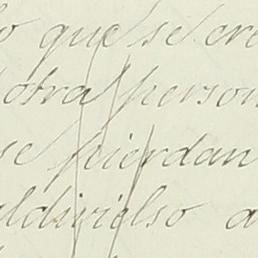 lo que se cre
otra person
se pierdan
aldivielso a